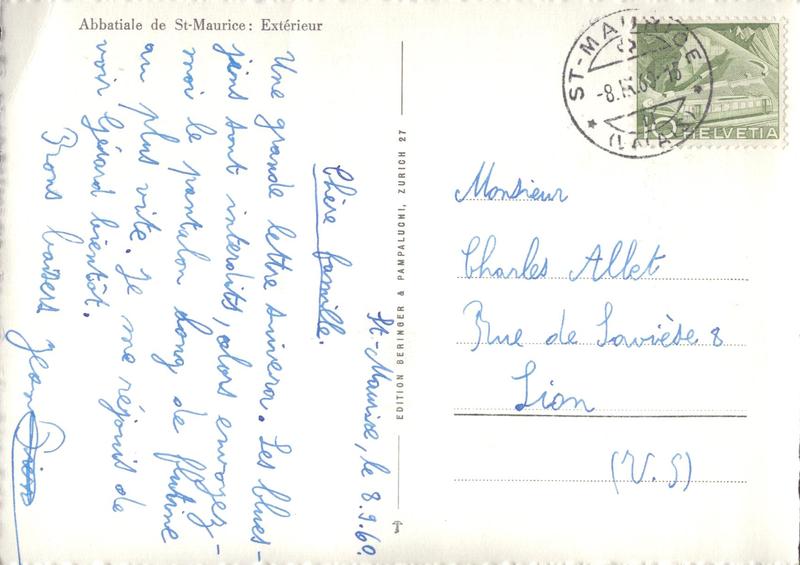 Abbatiale de St-Maurice: Extérieur
St-Maurice, le 8.9.60.
Chère famille.
Une grande lettre suivra. Les blues-
jeans sont interdits, alors envoyez-
moi le pantalon long de
au plus vite. Je me réjouis de
voir Gérard bientôt.
Bons baisers Jean
EDITION BERINGER & PAMPALUCHI, ZURICH 27
ST-MAURICE
-8.IX.60-15
(VALAIS)
5
HELVETIA
Monsieur
Charles Allet
Rue de Savièse 8
Sion
(V.S)